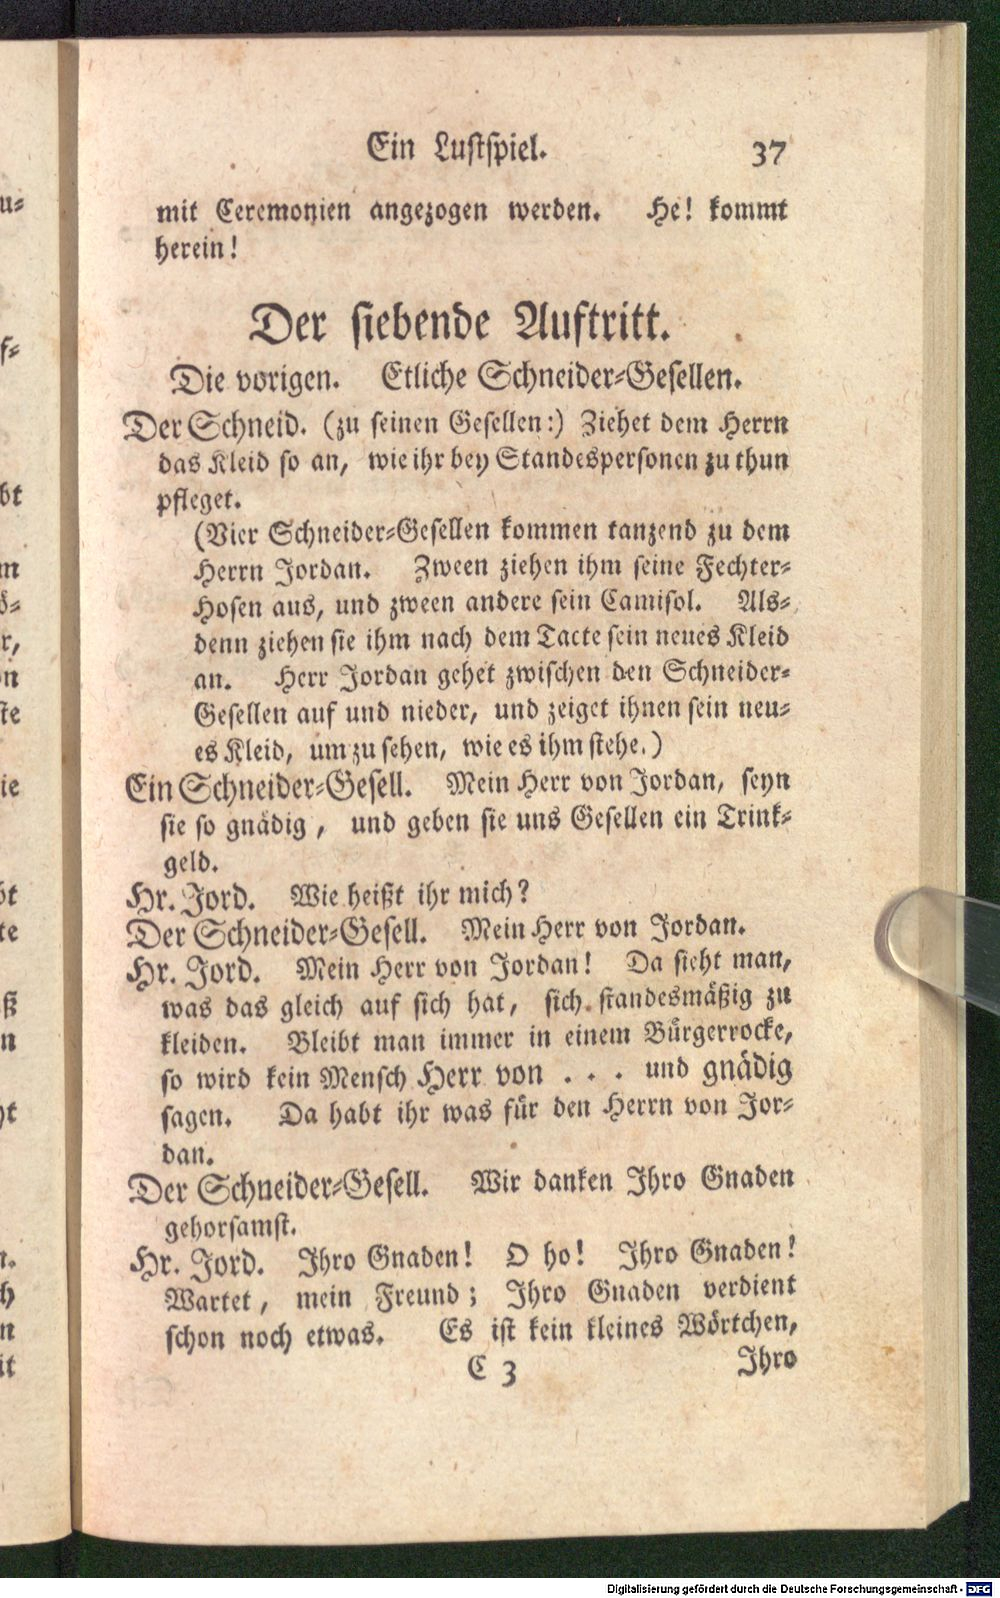 Ein Lustspiel. 37
mit Ceremonien angezogen werden. He! kommt
herein!
Der siebende Auftritt.
Die vorigen. Etliche Schneider-Gesellen.
Der Schneid. (zu seinen Gesellen:) Ziehet dem Herrn
das Kleid so an, wie ihr bey Standespersonen zu thun
pfleget.
(Vier Schneider-Gesellen kommen tanzend zu dem
Herrn Jordan. Zween ziehen ihm seine Fechter-
Hosen aus, und zween andere sein Camisol. Als-
denn ziehen sie ihm nach dem Tacte sein neues Kleid
an. Herr Jordan gehet zwischen den Schneider-
Gesellen auf und nieder, und zeiget ihnen sein neu-
es Kleid, um zu sehen, wie es ihm stehe.)
Ein Schneider-Gesell. Mein Herr von Jordan, seyn
sie so gnädig, und geben sie uns Gesellen ein Trink-
geld.
Hr. Jord. Wie heißt ihr mich?
Der Schneider-Gesell. Mein Herr von Jordan.
Hr. Jord. Mein Herr von Jordan! Da sieht man,
was das gleich auf sich hat, sich standesmäßig zu
kleiden. Bleibt man immer in einem Bürgerrocke,
so wird kein Mensch Herr von . . . und gnädig
sagen. Da habt ihr was für den Herrn von Jor-
dan.
Der Schneider-Gesell. Wir danken Ihro Gnaden
gehorsamst.
Hr. Jord. Ihro Gnaden! O ho! Ihro Gnaden!
Wartet, mein Freund; Ihro Gnaden verdient
schon noch etwas. Es ist kein kleines Wörtchen,
C 3 Ihro
Digitalisierung gefördert durch die Deutsche Forschungsgemeinschaft - DFG